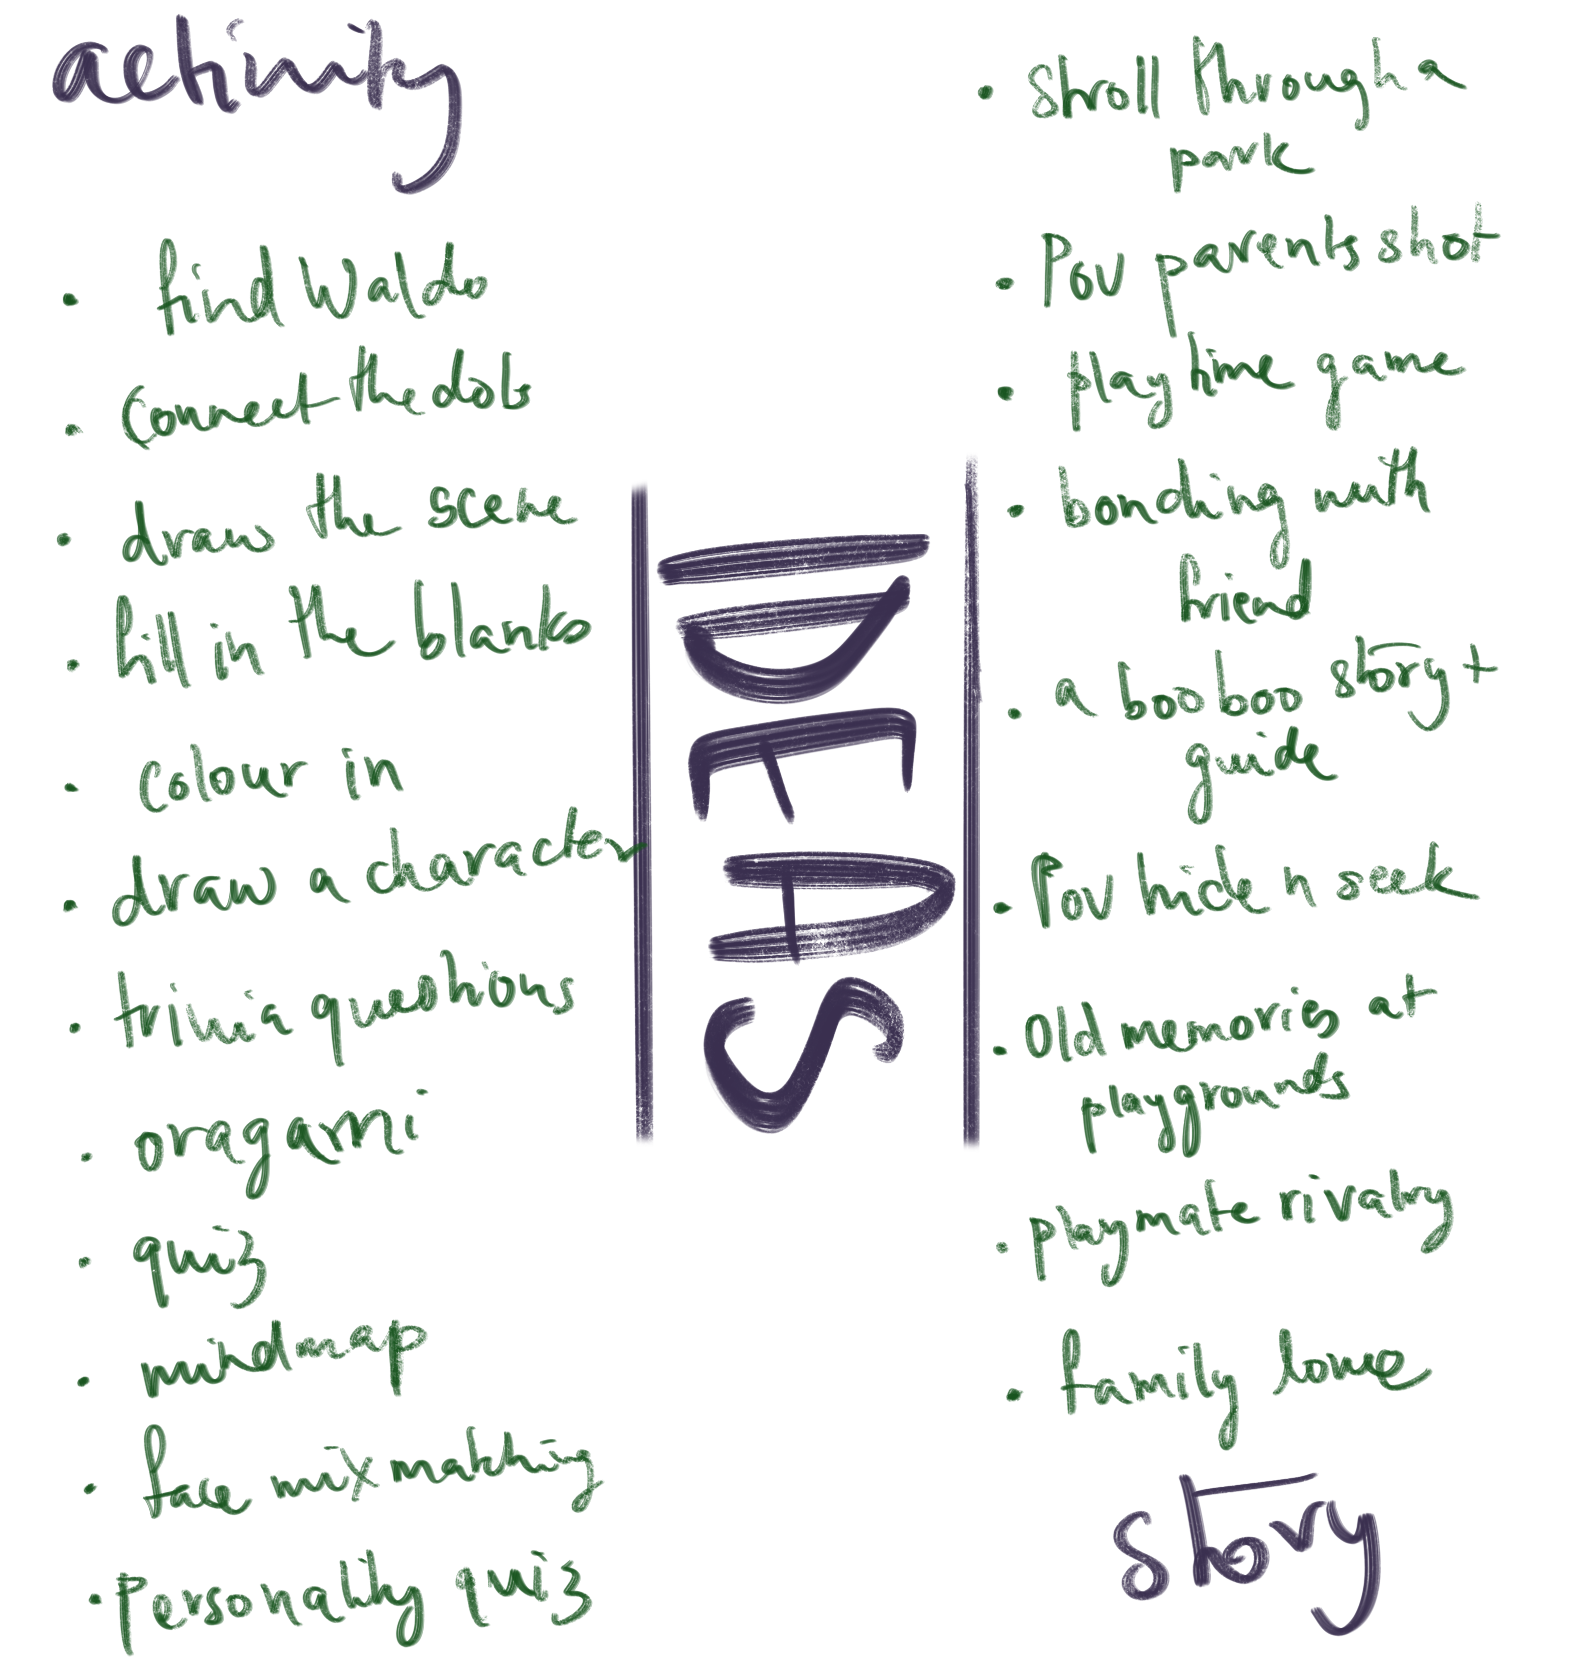 activity
• find Waldo
• connect the dots
• draw the scene
• fill in the blanks
• colour in
• draw a character
• trivia questions
• oragami
• quiz
• mindmap
• face mix matching
• Personality quiz
IDEAS
• stroll through a
park
• Pov parents shot
• play time game
• bonding with
friend
• a boo boo story +
guide
• Pov hide n seek
• Old memories at
playgrounds
• playmate rivalry
• family love
story